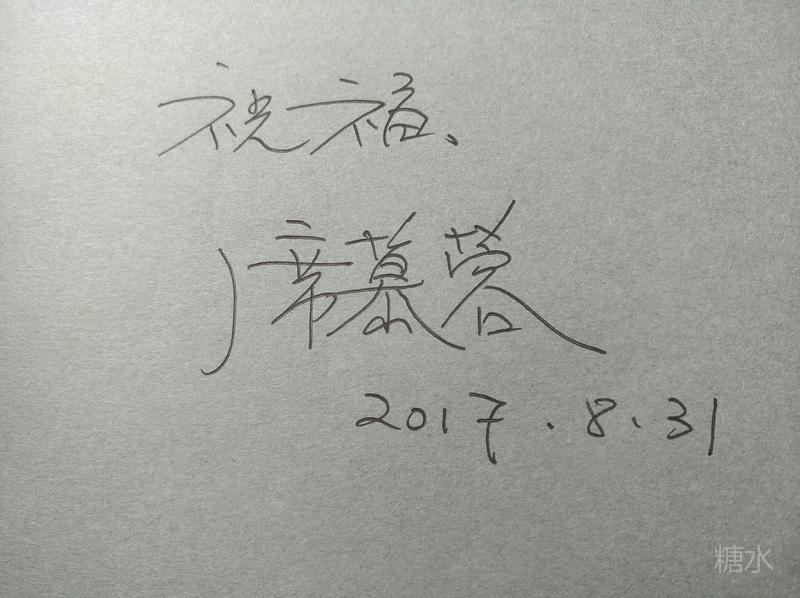 祝福、
席慕蓉
2017.8.31
糖水